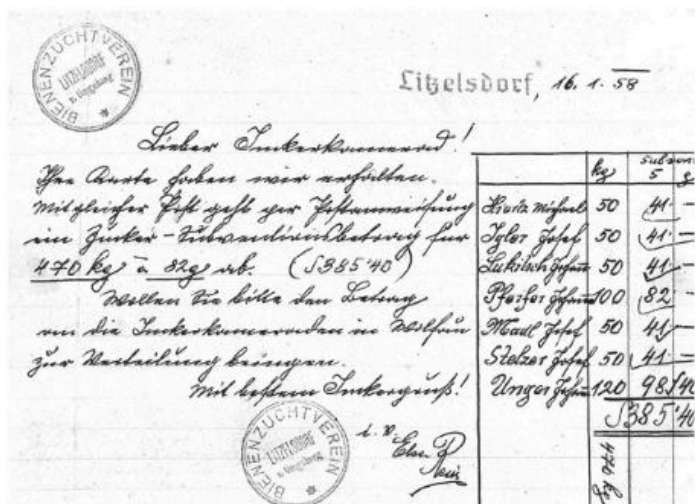 BIENENZUCHTVEREIN
LITZELSDORF
u. Umgebung
Litzelsdorf, 16. 1. 58
Lieber Imkerkamerad!
Ihre Karte haben wir erhalten.
Mit gleicher Post geht per Postanweisung
ein Zucker-Subventionsbetrag für
470 kg à 82g ab. (S385·40)
Wollen Sie bitte den Betrag
an die Imkerkameraden in Wolfau
zur Verteilung bringen.
Mit bestem Imkergruß!
i. V.
BIENENZUCHTVEREIN
LITZELSDORF
u. Umgebung
kg Subven
S g
Michael 50 41 —
Igler Josef 50 41 —
Johann 50 41 —
Pfeifer Johann 100 82 —
Madl Josef 50 41 —
Stelzer Josef 50 41 —
Unger Johann 120 98 40
S385·40
470 kg